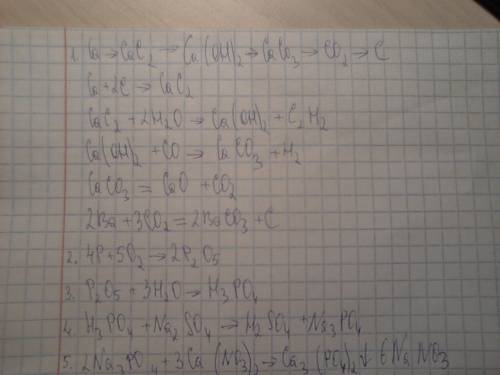 1. Ca→CaC₂→Ca(OH)₂→CaCO₃→CO₂→C
Ca+2C→CaC₂
CaC₂+2H₂O→Ca(OH)₂+C₂H₂
Ca(OH)₂+CO→CaCO₃+H₂
CaCO₃=CaO+CO₂
2Ba+3CO₂=2BaCO₃+C
2. 4P+5O₂→2P₂O₅
3. P₂O₅+3H₂O→H₃PO₄
4. H₃PO₄+Na₂SO₄→H₂SO₄+Na₃PO₄
5. 2Na₃PO₄+3Ca(NO₃)₂→Ca₃(PO₄)₂↓6NaNO₃